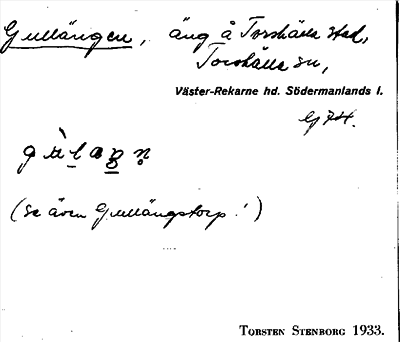 Gullängen, äng å Torshälla stad,
Torshälla sn,
Väster-Rekarne hd. Södermanlands l.
(se även Gullängstorp!)
TORSTEN STENBORG 1933.